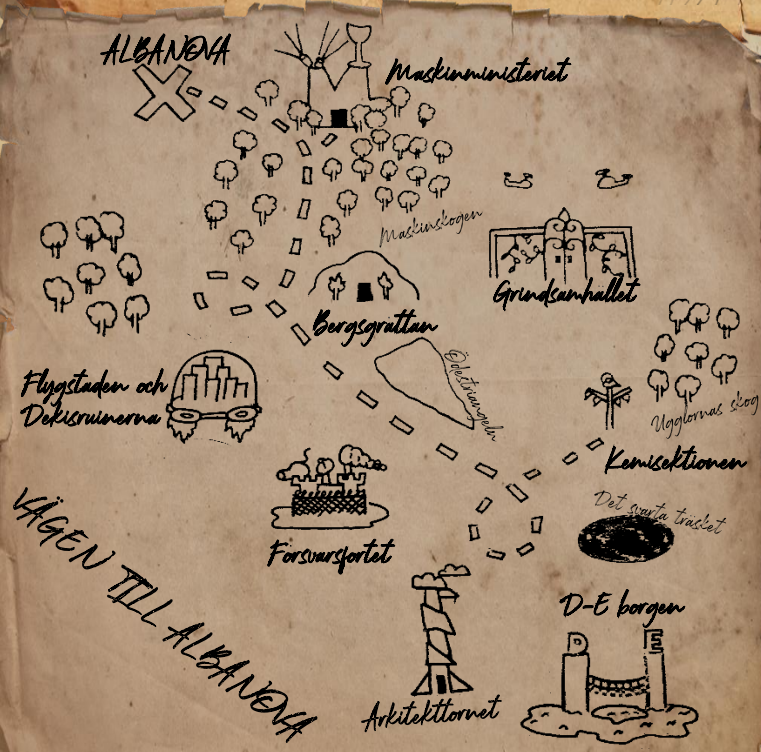 ALBANOVA
Maskinministeriet
Maskinskogen
Grindsamhallet
Bergsgrottan
Ödestriangeln
Flygstaden och
Dekisruinerna
Ugglornas skog
Kemisektionen
Det svarta träsket
Forsvarsfortet
VÄGEN TILL ALBANOVA
D-E borgen
D E
Arkitekttornet